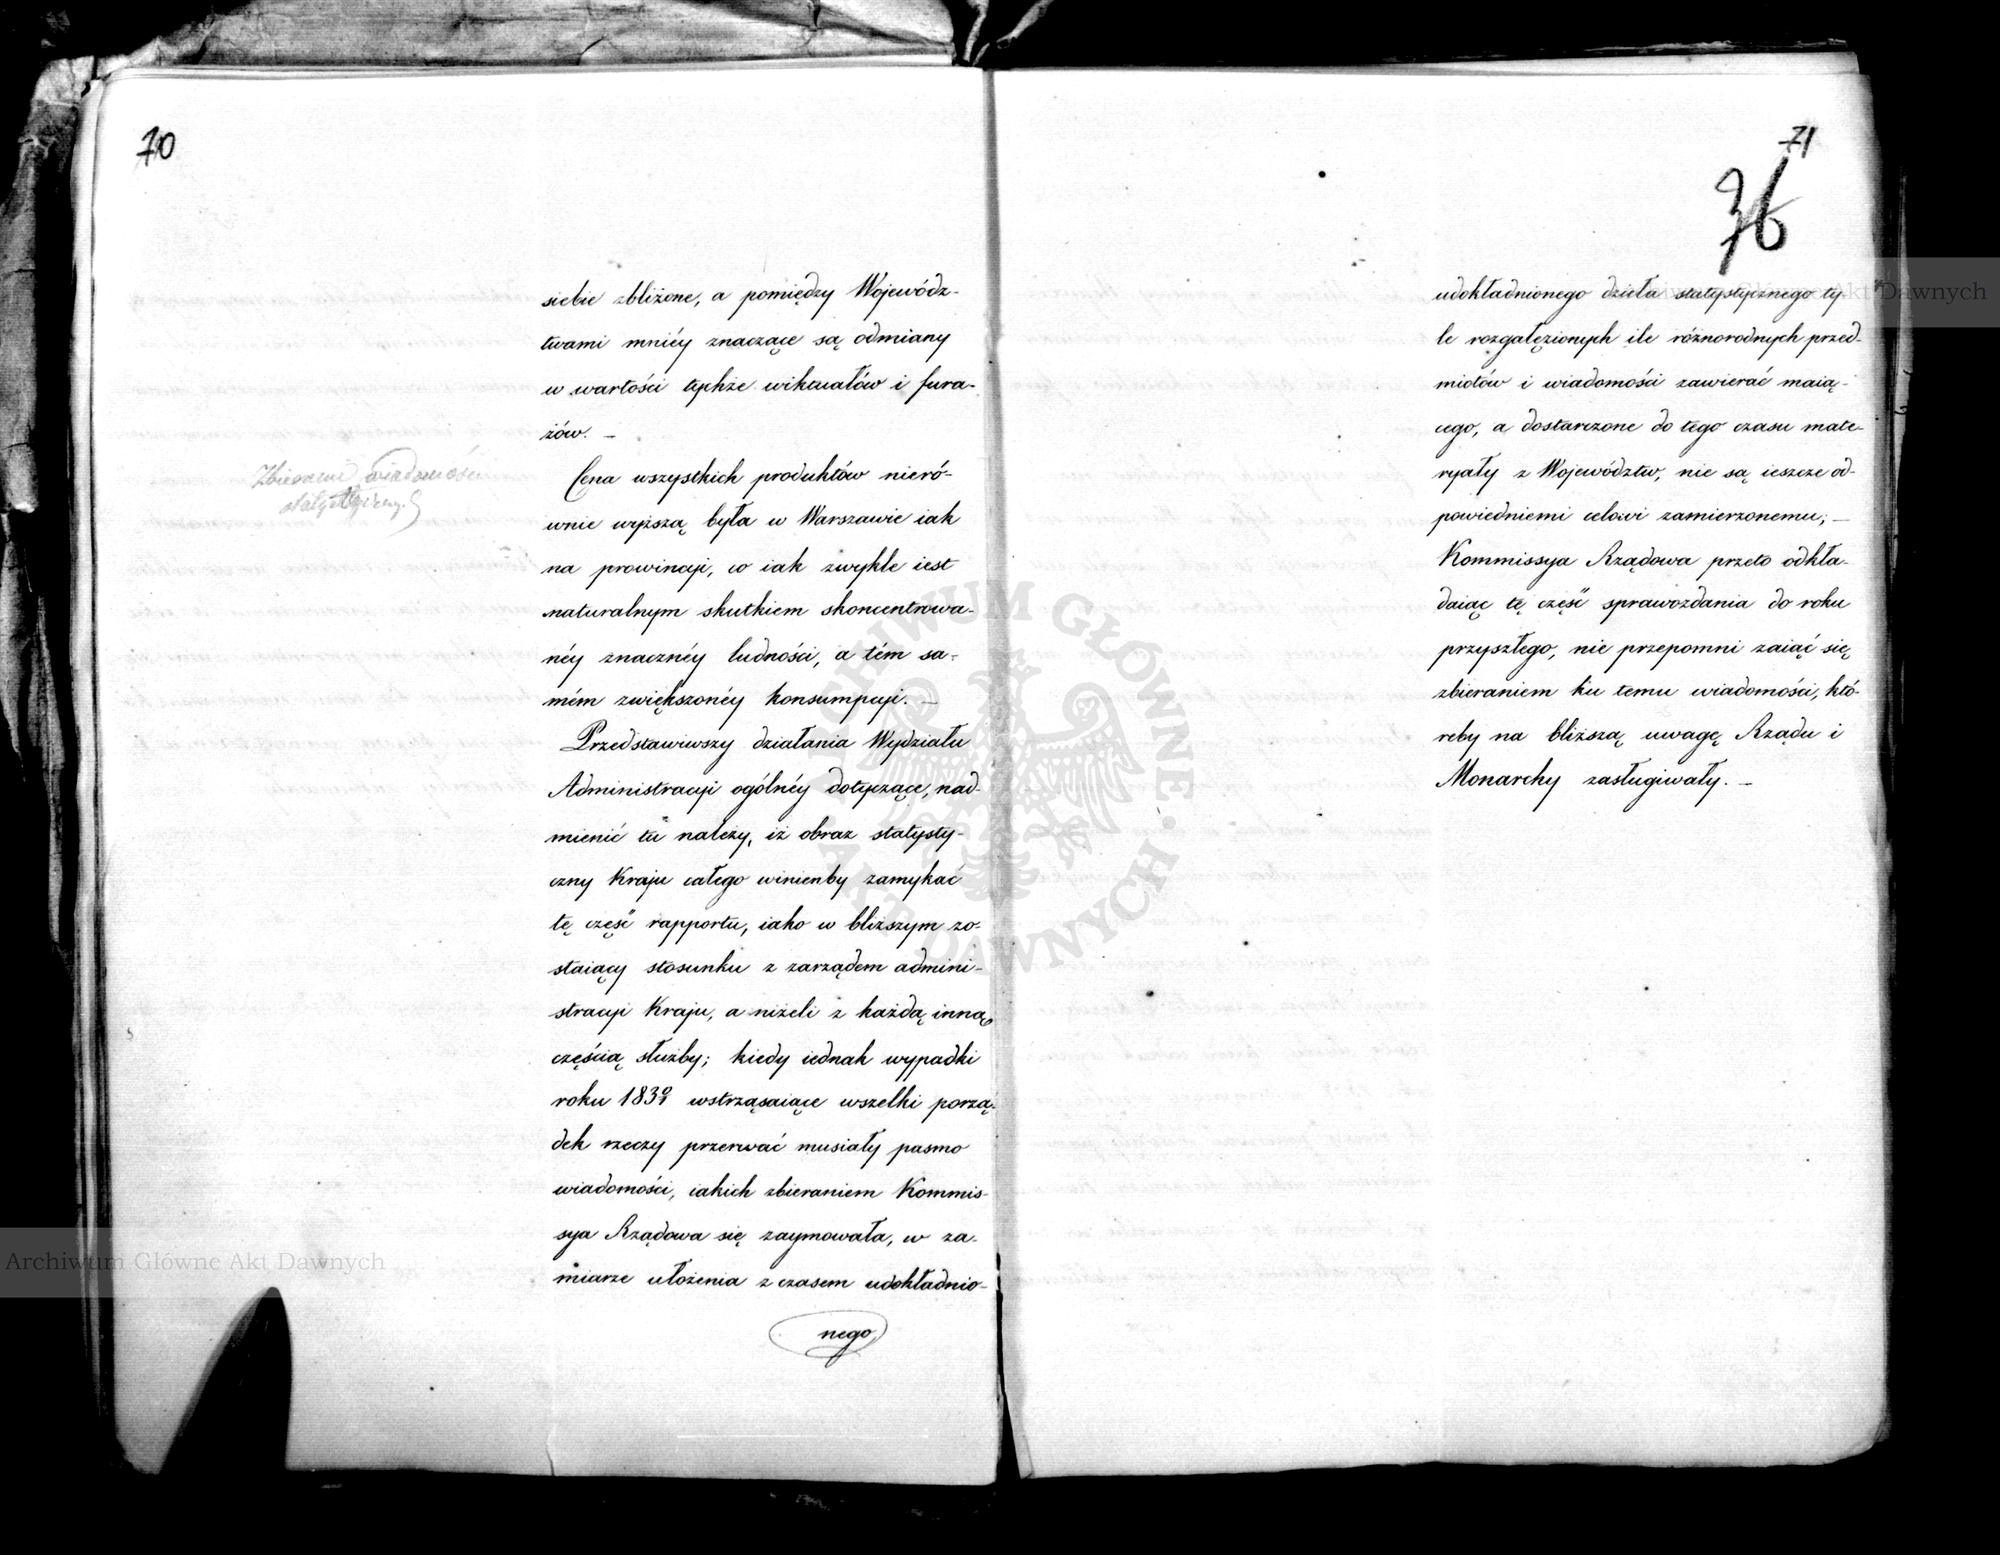 70
siebie zbliżone, a pomiędzy Wojewódz-
twami mniéy znaczące są odmiany
w wartości tychże wiktuałów i fura-
żów. –
Zbieranie wiadomości
statystyczny.
Cena wszystkich produktów nieró-
wnie wyższą była w Warszawie iak
na prowincyi, co iak zwykle iest
naturalnym skutkiem skoncentrowa-
néy znacznéy ludności, a tém sa-
mém zwiększonéy konsumpcyi. –
Przedstawiwszy działania Wydziału
Administracyi ogólnéy dotyczące, nad-
mienić tu należy, iż obraz statysty-
czny Kraju całego winienby zamykać
tę część rapportu, iako w bliższym zo-
staiący stosunku z zarządem admini-
stracyi Kraju, a niżeli z każdą inną
częścią służby; kiedy iednak wypadki
roku 1830/1 wstrząsaiące wszelki porzą-
dek rzeczy przerwać musiały pasmo
wiadomości, iakich zbieraniem Kommis-
sya Rządowa się zaymowała, w za-
miarze ułożenia z czasem udokładnio-
nego
71
36
udokładnionego dzieła statystycznego ty-
le rozgałęzionych ile różnorodnych przed-
miotów i wiadomości zawierać maią-
cego, a dostarczone do tego czasu mate-
ryały z Województw, nie są ieszcze od-
powiedniemi celowi zamierzonemu; –
Kommissya Rządowa przeto odkła-
daiąc tę część sprawozdania do roku
przyszłego, nie przepomni zaiąć się
zbieraniem ku temu wiadomości, któ-
reby na bliższą uwagę Rządu i
Monarchy zasługiwały. –
Archiwum Główne Akt Dawnych
Archiwum Główne Akt Dawnych
ARCHIWUM GŁÓWNE AKT DAWNYCH